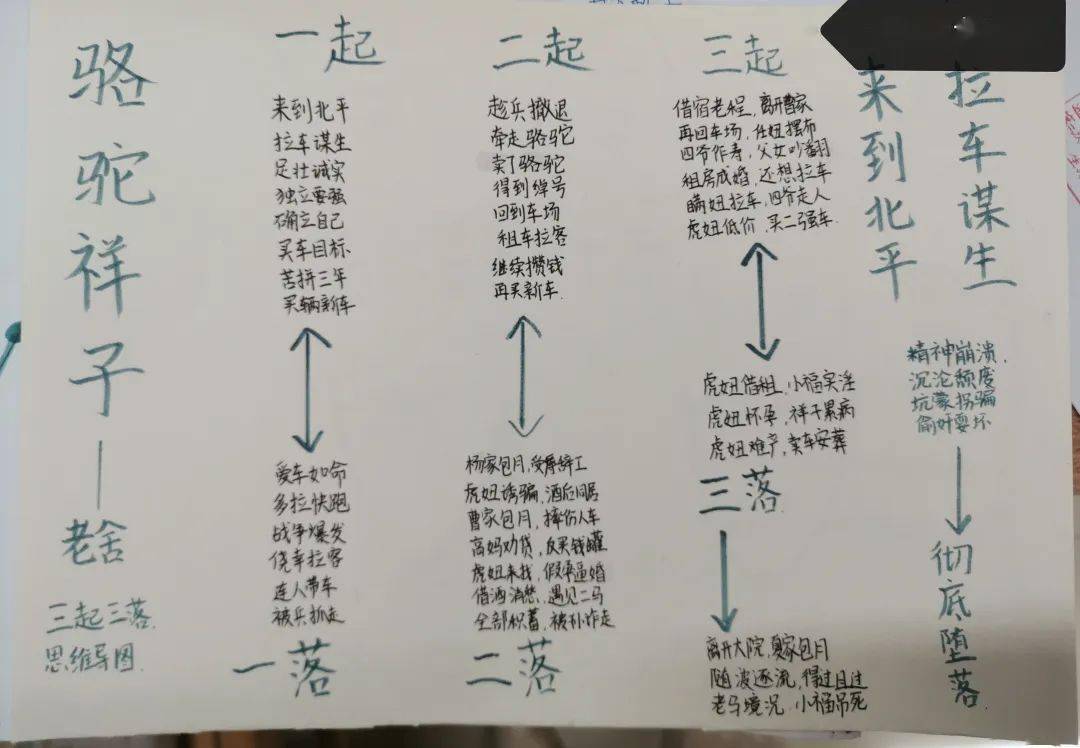 骆驼祥子——老舍
三起三落
思维导图
一起
来到北平
拉车谋生
足壮诚实
独立要强
确立自己
买车目标
苦拼三年
买辆新车
爱车如命
多拉快跑
战争爆发
侥幸拉客
连人带车
被兵抓走
一落
二起
趁兵撤退
牵走骆驼
卖了骆驼
得到绰号
回到车场
租车拉客
继续攒钱
再买新车.
杨家包月,受辱辞工
虎妞诱骗,酒后同居
曹家包月,摔伤人车
高妈劝贷,反买钱罐
虎妞来找,假孕逼婚
借酒消愁,遇见二马
全部积蓄,被孙诈走
二落
三起
借宿老程,离开曹家
再回车场,任妞摆布
四爷作寿,父女吵翻
租房成婚,还想拉车
瞒妞拉车,四爷走人
虎妞低价,买二强车
虎妞借租,小福卖淫
虎妞怀孕,祥子累病
虎妞难产,卖车安葬
三落
离开大院,夏家包月
随波逐流,得过且过
老马境况,小福吊死
来到北平
拉车谋生
精神崩溃.
沉沦颓废
坑蒙拐骗
偷奸耍坏
彻底堕落.